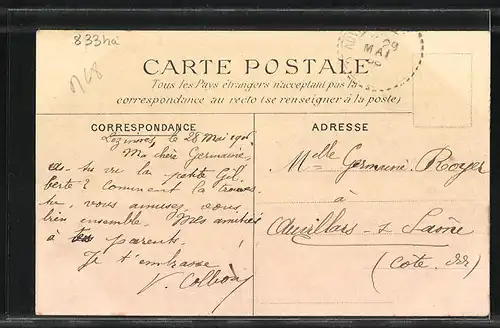 833ha
CARTE POSTALE
Tous les Pays étrangers n'acceptant pas la
correspondance au recto (se renseigner à la poste)
29
MAI
CORRESPONDANCE
ADRESSE
le 28 Mai
Ma chère Germaine,
as-tu vu la petite Gil
berte? Comment la trouves
tu, vous amusez vous
bien ensemble. Mes amitiés
à tes parents.
Je t'embrasse
V.
Melle Germaine Royer
à
Auvillars s Saône
(Côte d'Or)